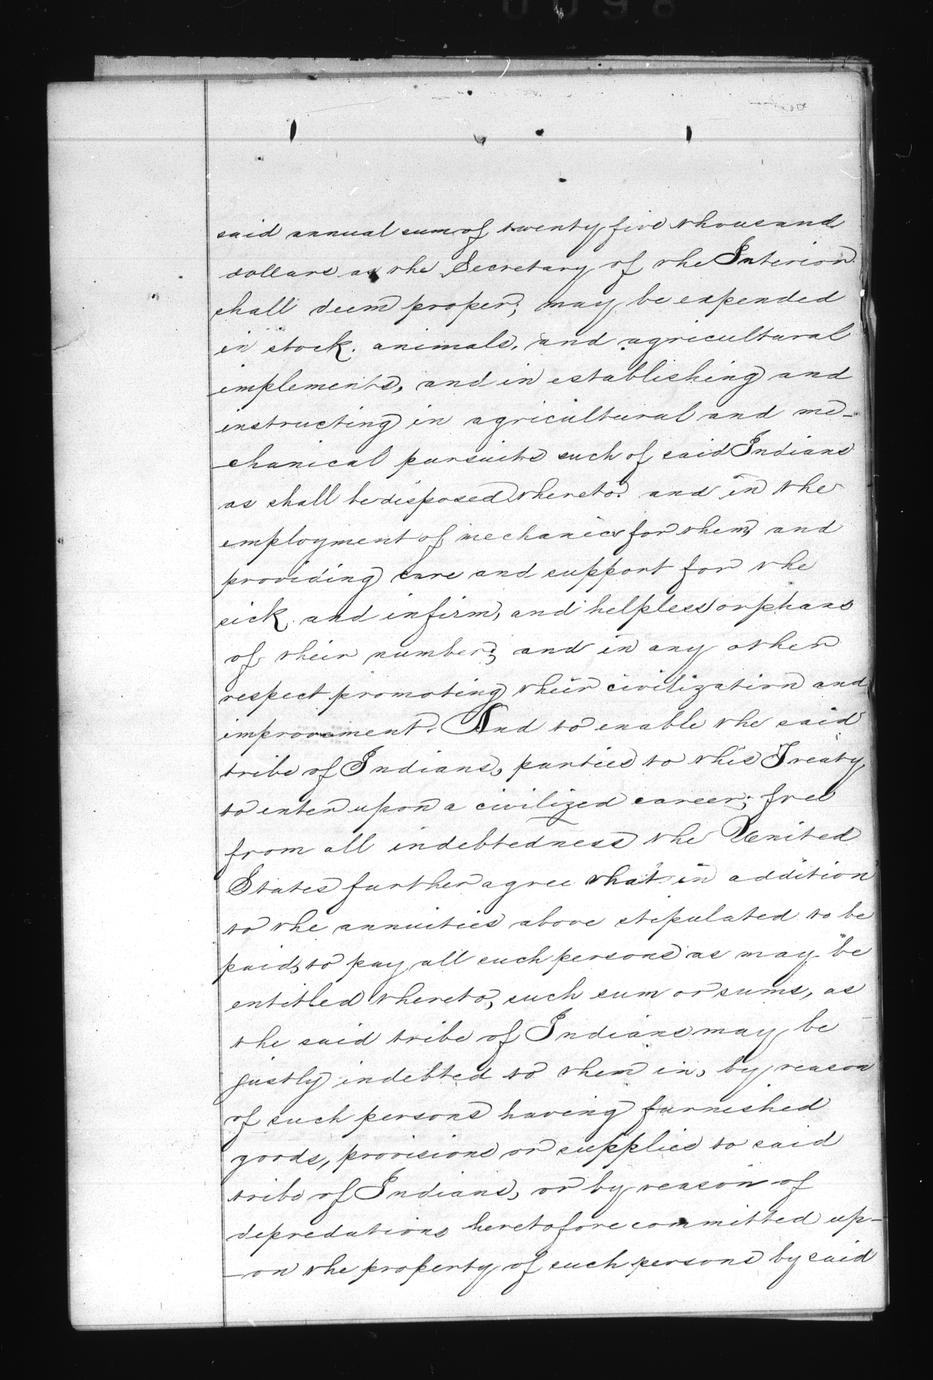 0098
said annual sum of twenty five thousand
dollars as the Secretary of the Interior
shall deem proper, may be expended
in stock. animals, and agricultural
implements, and in establishing and
instructing in agricultural and me-
-chanical pursuits such of said Indians
as shall be disposed thereto. and in the
employment of mechanics for them, and
providing care and support for the
sick. and infirm, and helpless orphans
of their number; and in any other
respect promoting their civilization and
improvement. And to enable the said
tribe of Indians, parties to this Treaty,
to enter upon a civilized career; free
from all indebtedness the United
States further agree that in addition
to the annuities above stipulated to be
paid, to pay all such persons as may be
entitled thereto, such sum or sums, as
the said tribe of Indians may be
justly indebted to them in, by reason
of such persons having furnished
goods, provisions or supplies to said
tribe of Indians, or by reason of
depredations heretofore committed up-
-on the property of such persons by said